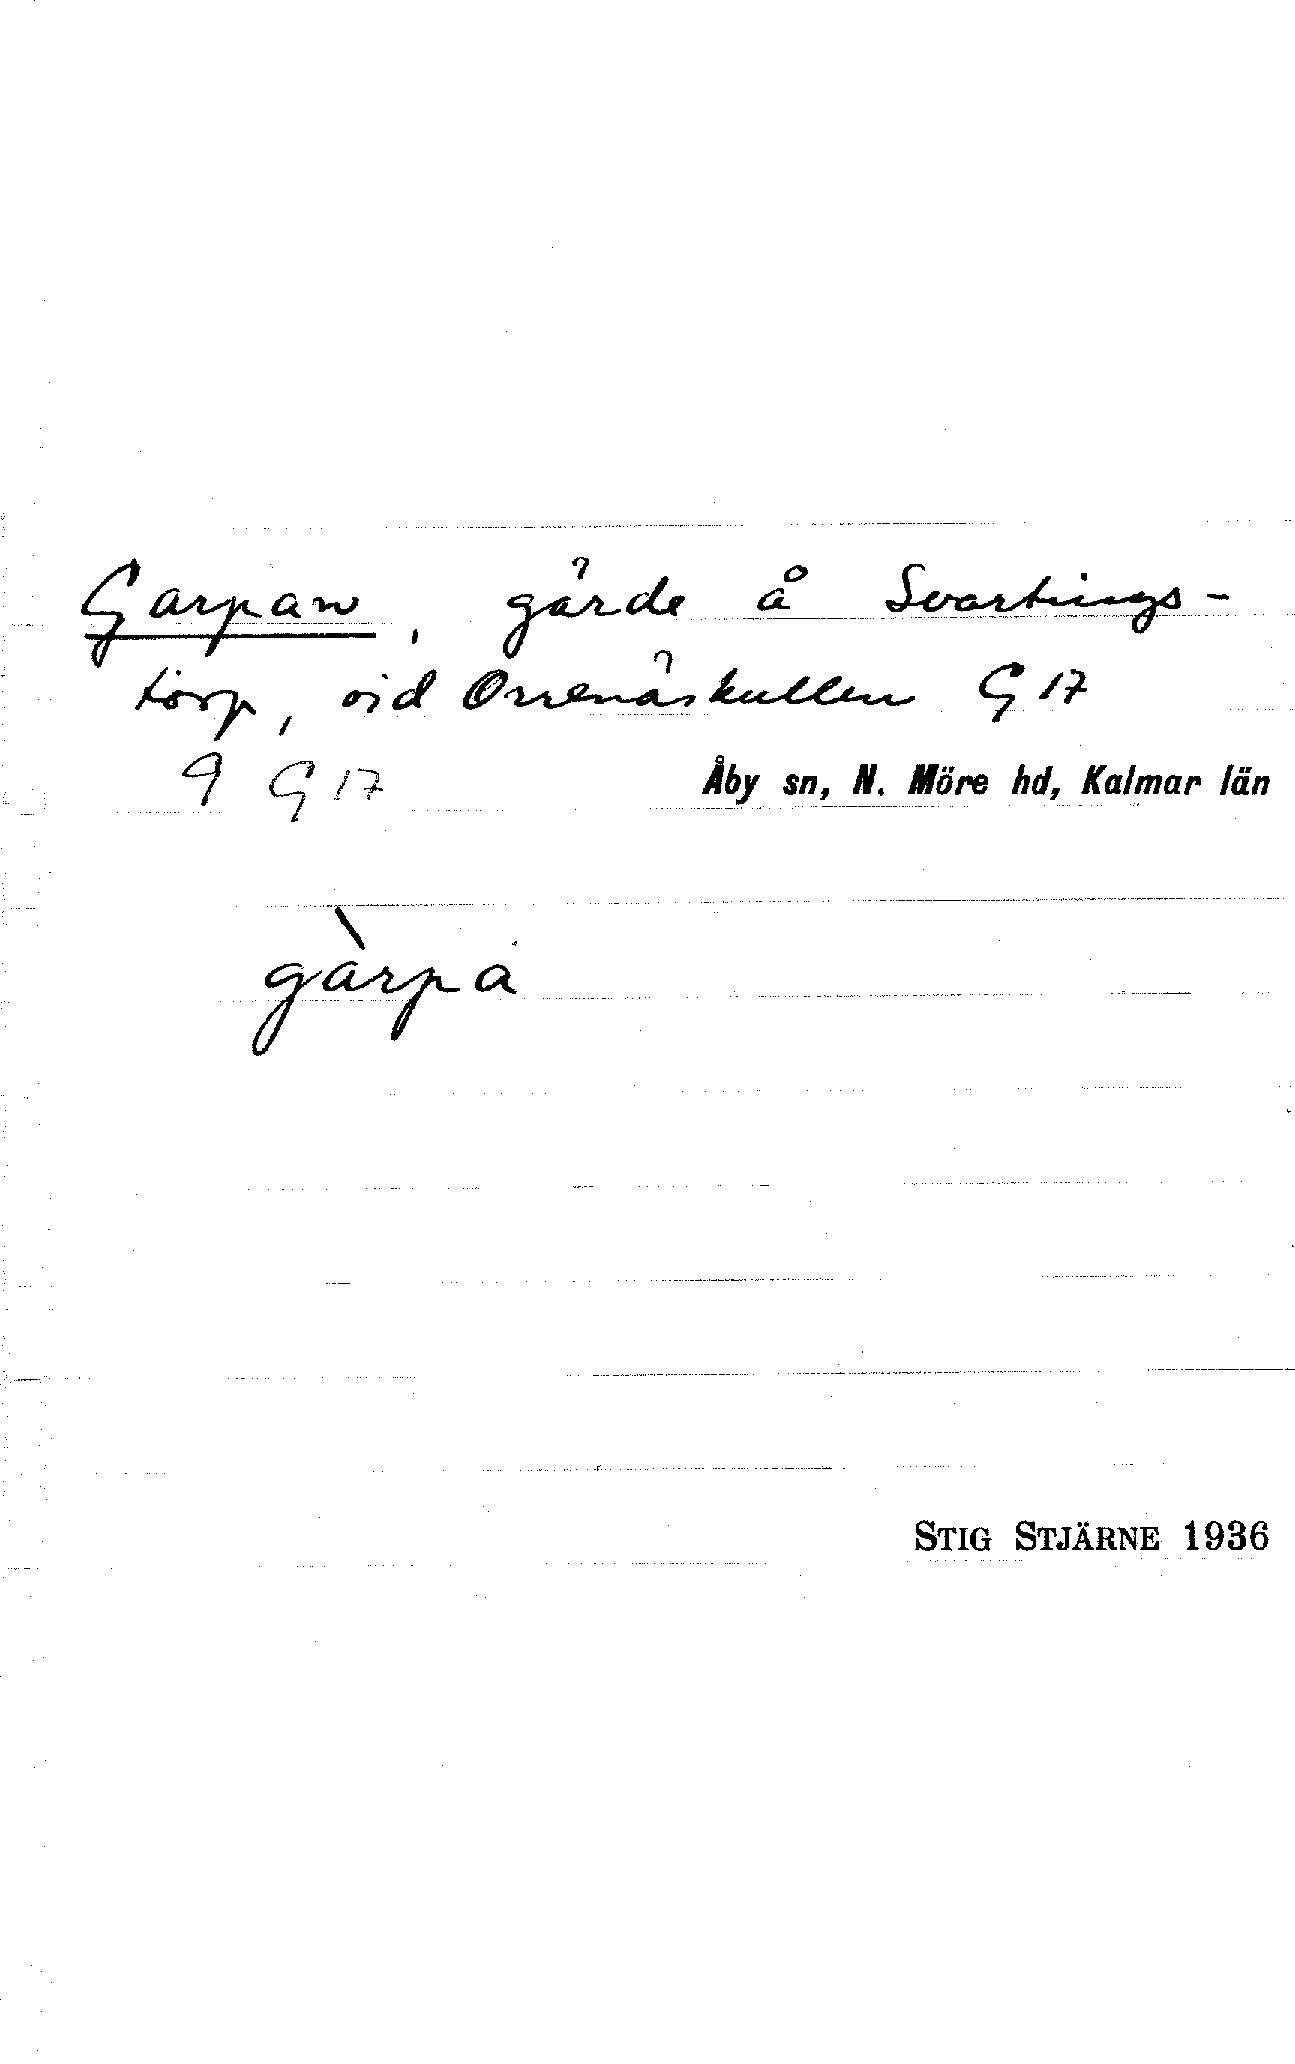 Garpan, gärde å Svartings-
torp, vid Orrenäskullen G 17
9 G 17 Åby sn, N. Möre hd, Kalmar län
gàrpa
STIG STJÄRNE 1936